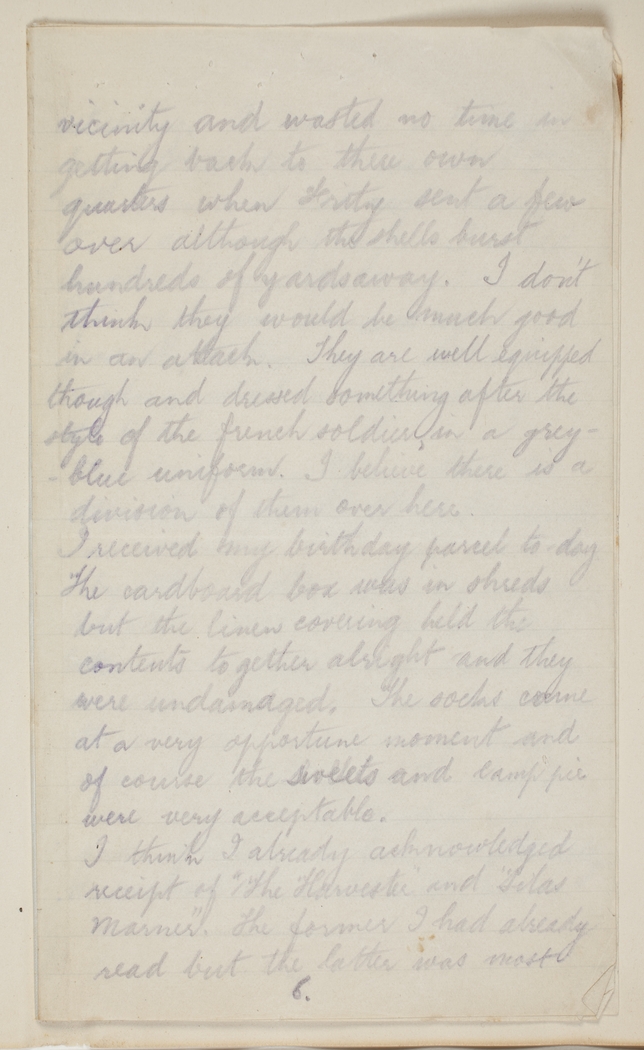 vicinity and wasted no time in
getting back to there own
quarters when Fritz sent a few
over although the shells burst
hundreds of yards away. I don't
think they would be much good
in an attack. They are well equipped
though and dressed something after the
style of the french soldier, in a grey-
-blue uniform. I believe there is a
division of them over here.
I received my birthday parcel to-day
The cardboard box was in shreds
but the linen covering held the
contents together alright and they
were undamaged. The socks came
at a very opportune moment and
of course the sweets and camp pie
were very acceptable.
I think I already acknowledged
receipt of "The Harvester" and "Silas
Marner". The former I had already
read but the latter was most
6.